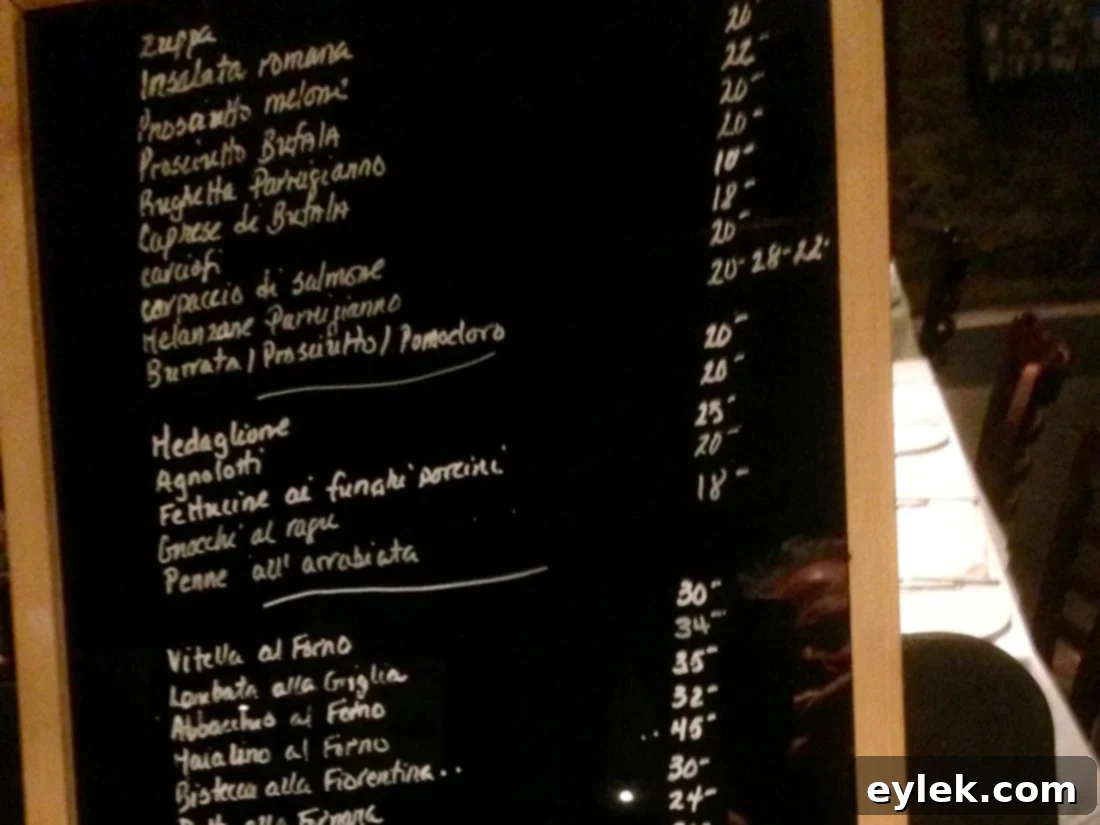 Zuppa
Insalata romana
Prosciutto meloni 20-
Prosciutto Bufala 22-
Rughetta Parmigianno 20-
Caprese di Bufala 20-
carciofi 18-
carpaccio di salmone 18-
Melanzane Parmigianno 20-
Burrata / Prosciutto / Pomodoro 20-28-22-
Medaglione 20-
Agnolotti 20-
Fettucine ai funghi porcini 25-
Gnocchi al ragu 20-
Penne all' arrabiata 18-
Vitella al Forno 30-
Lombata alla Griglia 34-
Abbacchio al Forno 35-
Maialino al Forno 32-
Bistecca alla Fiorentina .. .. 45-
alla 30-
24-
eylek.com